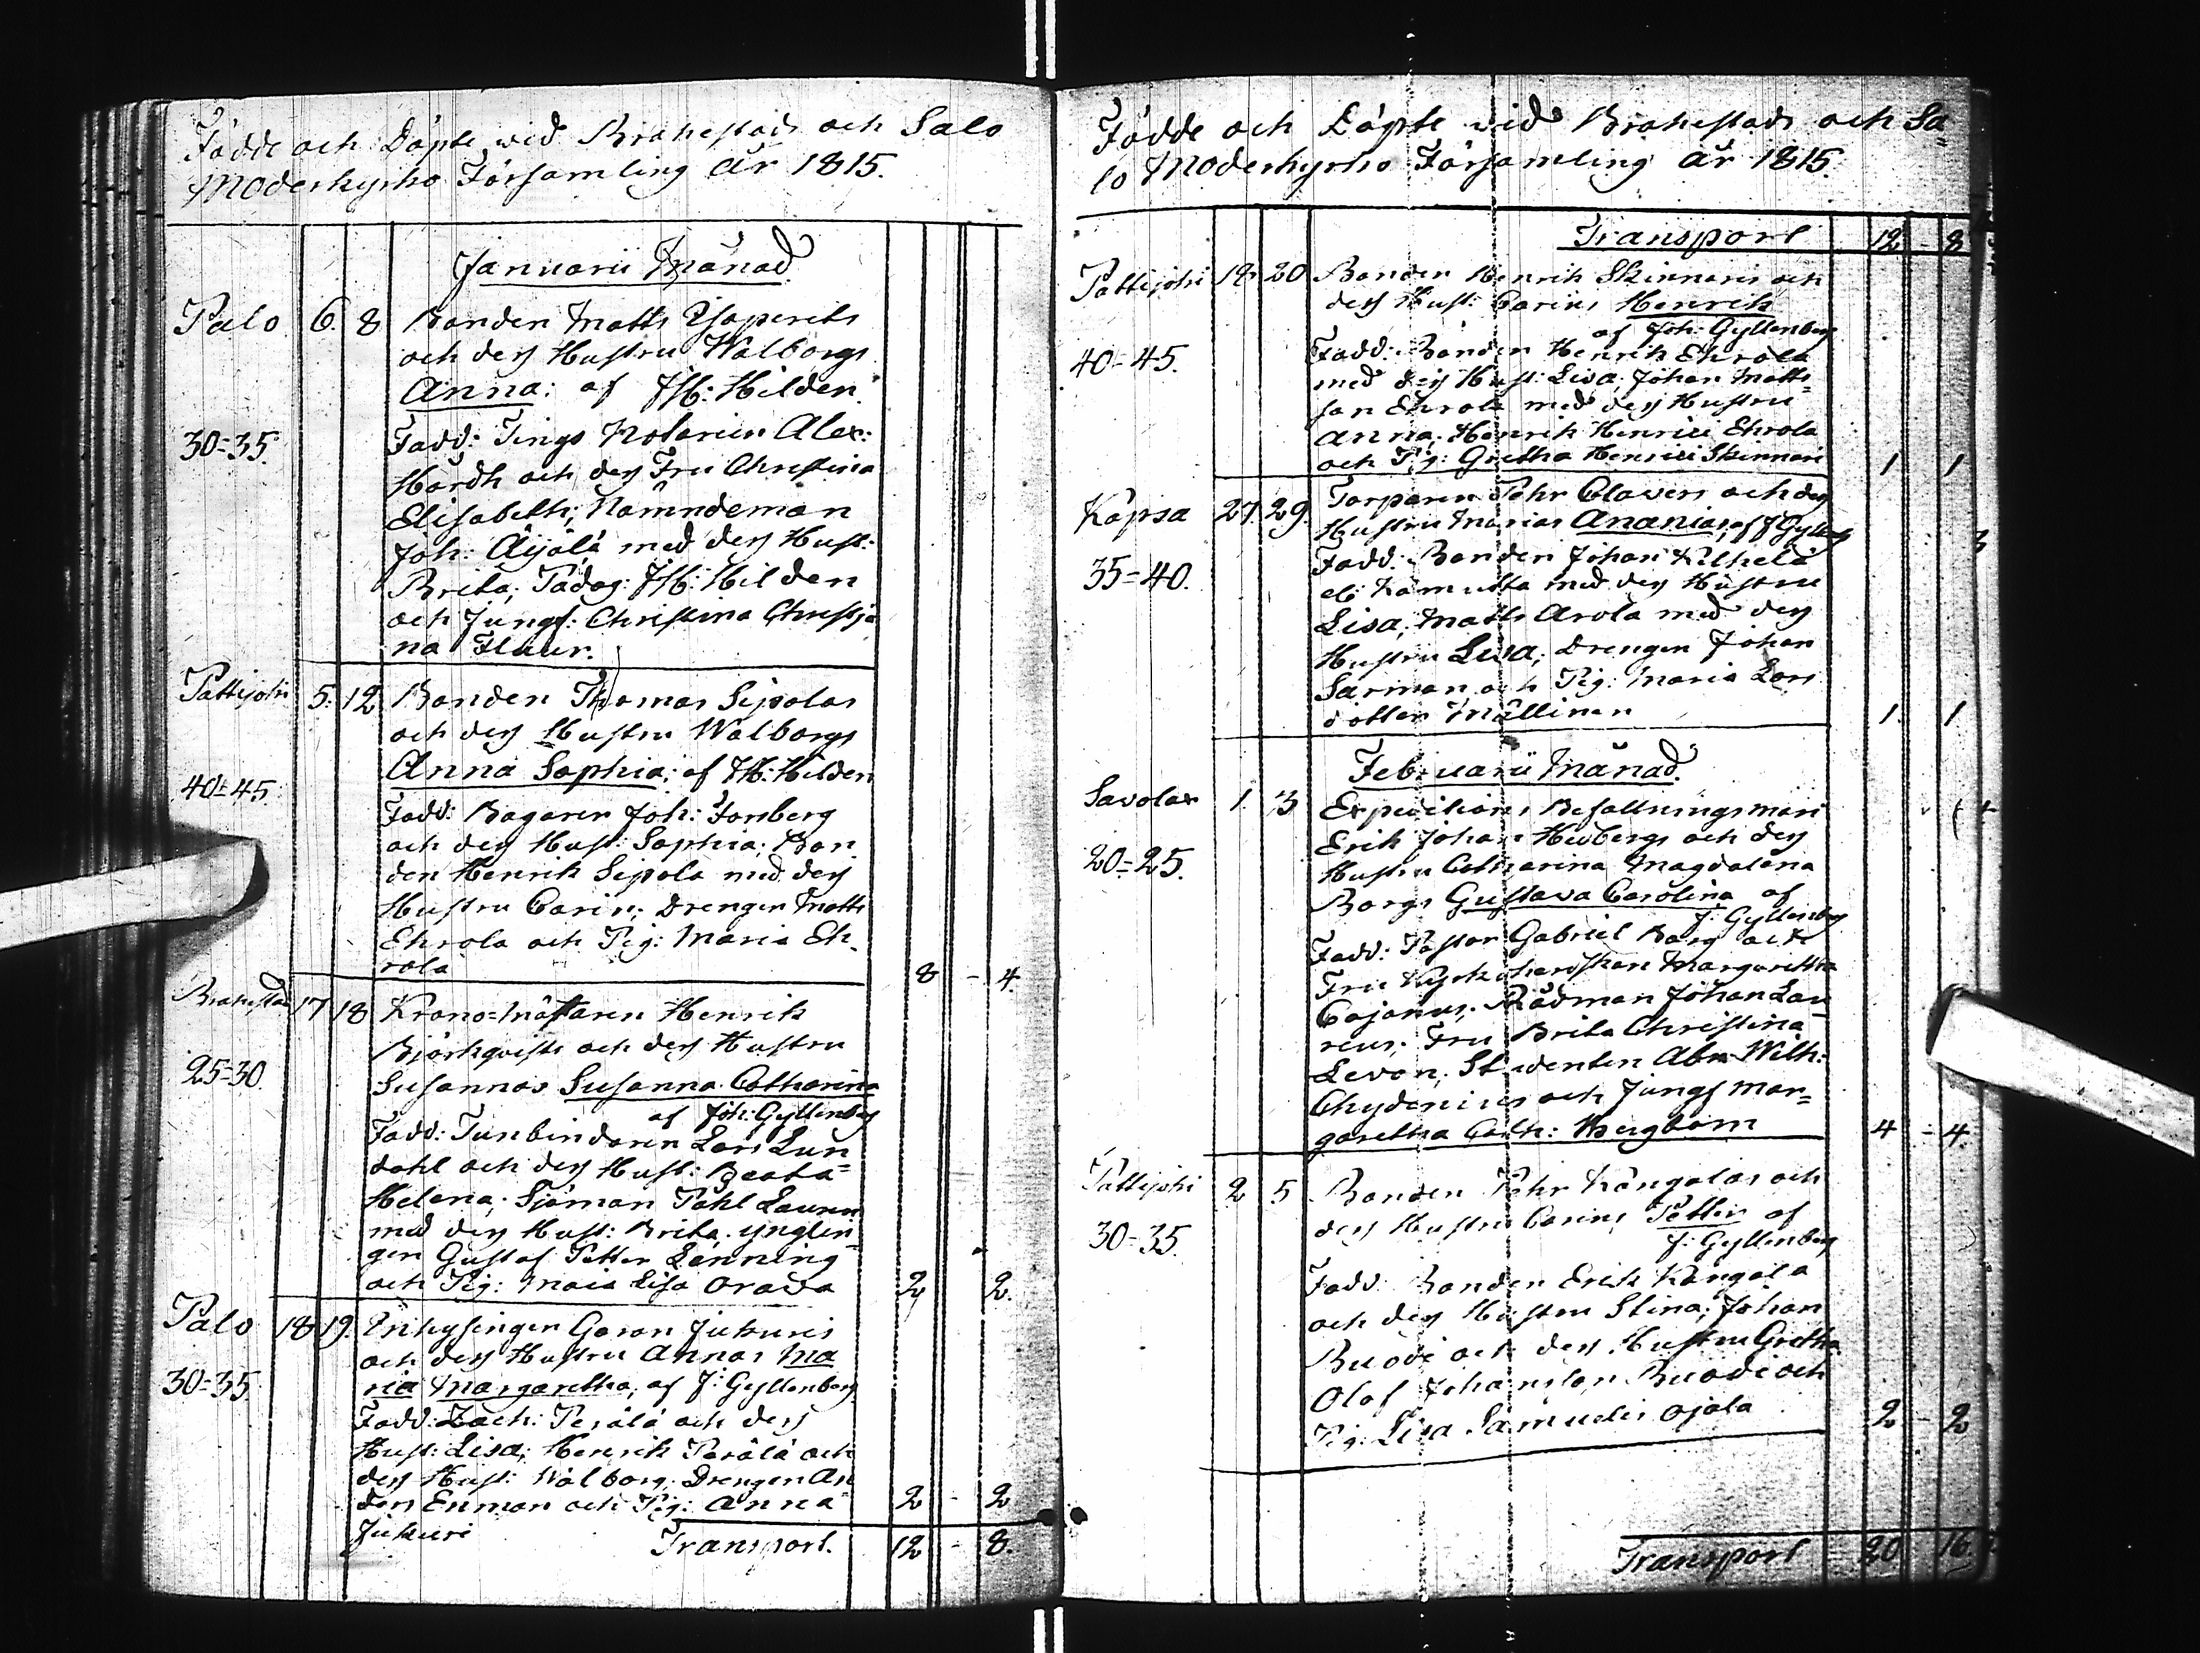 Födde och Döpte wid Brahestads och Salo
Moderkyrko Församling år 1815.
Januarii Månad
Palo 6. 8 Bonden Matts Isoperets
och dess Hustru Walborgs
Anna: af JH: Hilden.
30=35. Fadd: Tings Notarien Alex:
Hårdh och dess Fru Christina
Elisabeth; Nämndeman
Joh: Äijälä med dess Hust:
Brita; Pädag: JH: Hilden
och Jungf: Christina Christja
na Flaur.
Pattijoki 5. 12 Bonden Thomas Sipolas
och dess Hustru Walborgs
Anna Sophia; af JH: Hilden
40=45. Fadd: Bagaren Joh: Forsberg
och dess Hust: Sophia; Bon
den Henrik Sipola med dess
Hustru Carin; Drengen Matts
Ehrola och Pig: Maria Eh
rola 8 - 4.
Brahestad 17 18 Krono=Mätaren Henrik
Björkqvists och dess Hustru
25=30. Susannas Susanna Catharina
af Joh: Gyllenberg
Fadd: Tunbindaren Lars Lun
dahl och dess Hust: Beata
Helena; Sjöman Pahl Lauren
med dess Hust: Brita; ynglin
gen Gustaf Petter Lenning
och Pig: Maia Lisa Orava 2 2.
Palo 18 19. Inhysingen Göran Jukuris
och dess Hustru Annas Ma
30=35. ria Margaretha; af J: Gyllenberg
Fadd: Zach: Perälä och dess
Hust: Lisa; Henrik Perälä och
dess Hust: Walborg; Drengen An
ders Enman och Pig: Anna 2 - 2
Jukuri Transport. 12 - 8.
Födde och Döpte wid Brahestads och Sa
lo Moderkyrko Församling år 1815.
Transport 12 - 8
Pattijoki 18 20 Bonden Henrik Skinnaris och
dess Hust: Carins Henrik
af Joh: Gyllenberg
40=45. Fadd: Bonden Henrik Ehrola
med dess Hust: Lisa; Johan Matts
son Ehrola med dess Hustru
Anna; Henrik Henrici Ehrola
och Pig: Gretha Henrici Skinnari 1 1
Kopsa 27. 29. Torparen Pehr Olavers och dess
Hustru Marias Ananias; af J Gyllenb
35=40. Fadd: Bonden Johan Kilhelä
el: Kämuttä med dess Hustru
Lisa; Matts Arola med dess
Hustru Lisa; Drengen Johan
Sarman och Pig: Maria Lars
dotter Mällinen 1. 1
Februarii Månad.
Savolax 1. 3 Expeditions Befallningsman
Erik Johan Hedbergs och dess
20=25. Hustru Catharina Magdalena
Borgs Gustava Carolina af
J: Gyllenberg
Fadd: Pastor Gabriel Borg och
Fru Kyrkoherdskan Margaretha
Cajanus; Rådman Johan Lau
reus; Fru Brita Christina
Levon; Studenten Abr: Wilh:
Chydenius och Jungf Mar=
garetha Cath: Bergbom 4 - 4.
Pattijoki 2 5 Bonden Pehr Kangalas och
dess Hustru Carins Petter af
30=35. J: Gyllenberg
Fadd: Bonden Erik Kangala
och dess Hustru Stina; Johan
Buodi och dess Hustru Gretha
Olof Johansson Buodi och
Pig: Lisa Samuelis Ojala 2 - 2
Transport 20 - 16